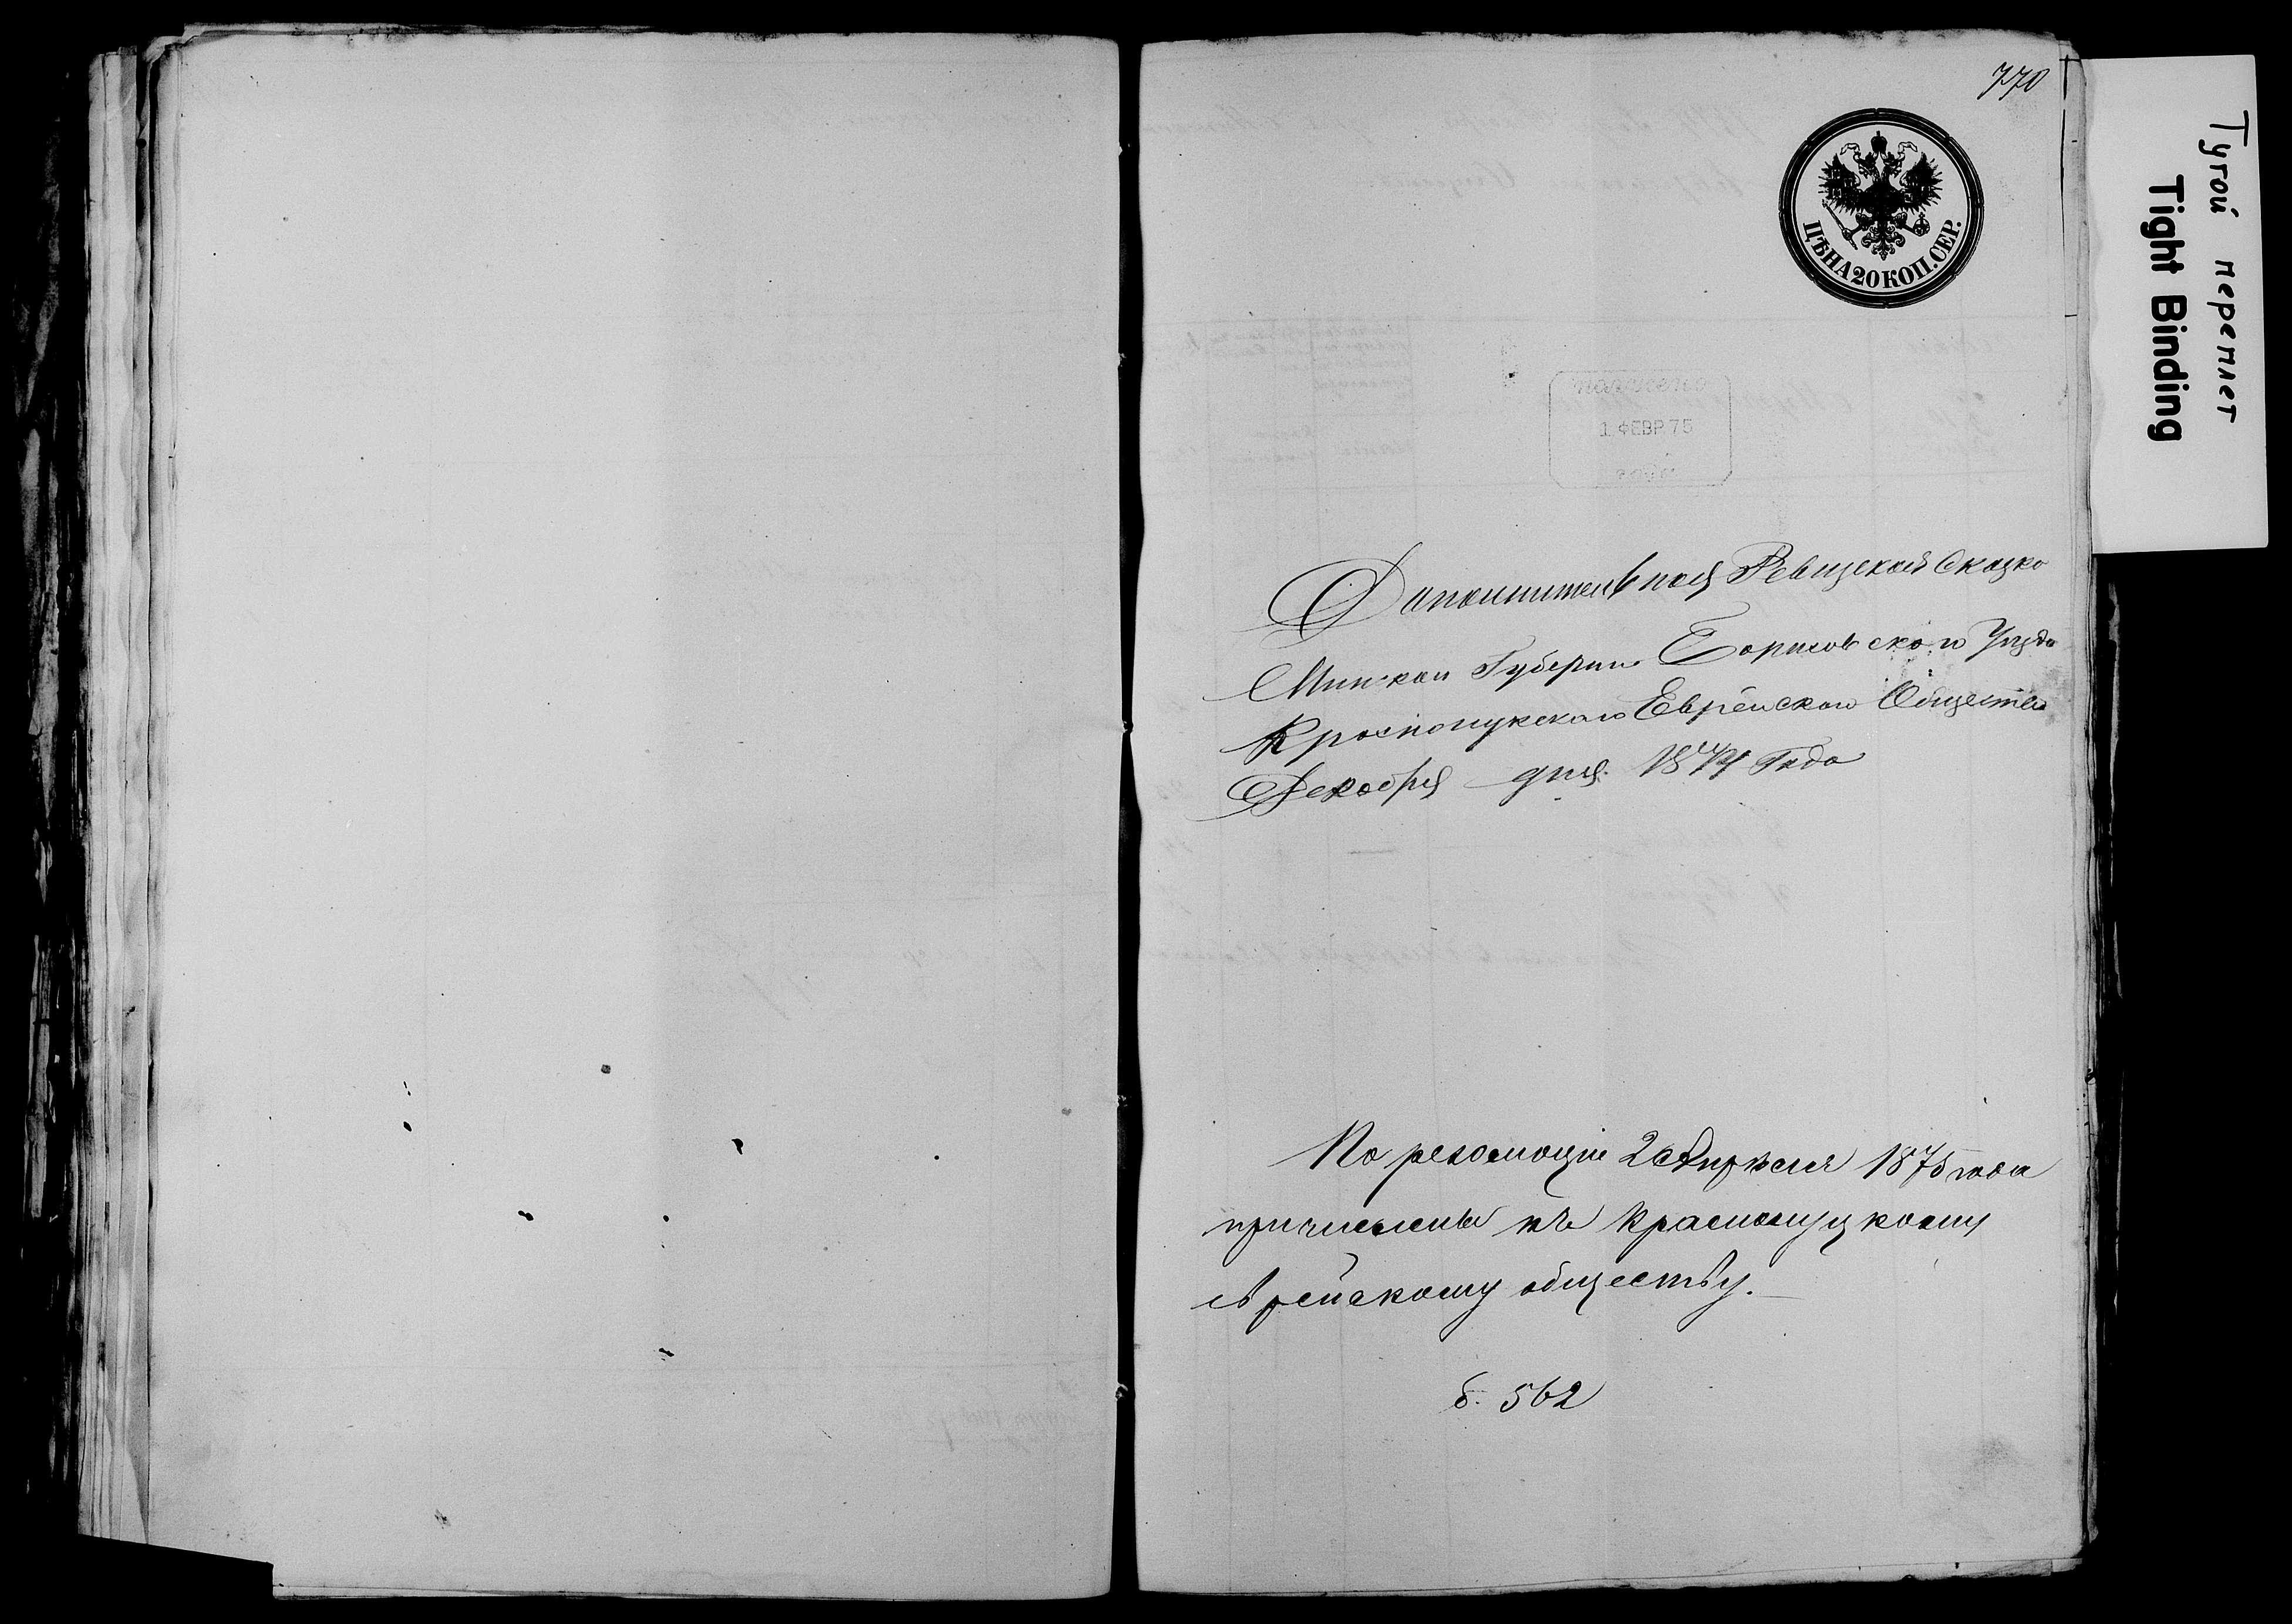 770
ЦѢНА 20 КОП. СЕР.
Тугой переплет
Tight Binding
1 ФЕВР 75
Дапонительноя Ревизской Сказко
Минской Губернии Борисовского Уезда
Еврейского Общества
Декобря дня 1874 Года
По резолюціи 26 Апрѣля 1875 года
причислены къ Краснолуцкому
еврейскому обществу.
б. 562